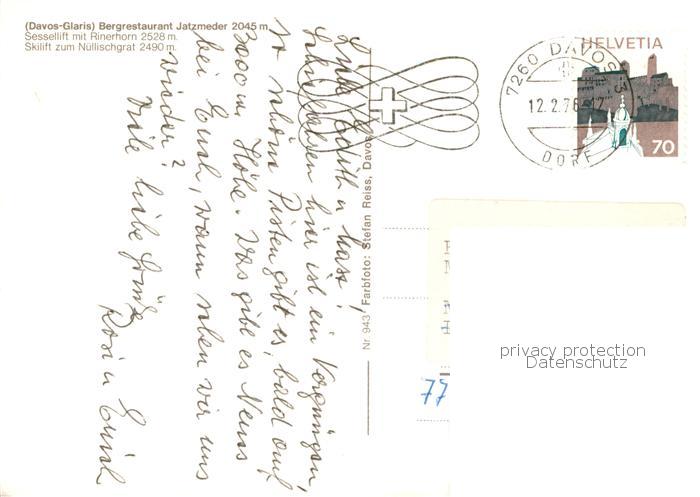 (Davos-Glaris) Bergrestaurant Jatzmeder 2045 m.
Sessellift mit Rinerhorn 2528 m.
Skilift zum Nüllischgrat 2490 m.
Liebe Edith u
Schifahren hier ist ein Vergnügen,
so schöne Pisten gibt es, bald auf
3000 m, Höhe. Was gibt es Neues
bei Euch, wann sehen wir uns
wieder?
Viele liebe Grüße
Rosi u Erich
Nr. 943 Farbfoto: Stefan Reiss, Davos
7260 DAVOS 3
12.2.76
DORF
HELVETIA
70
77
privacy protection
Datenschutz